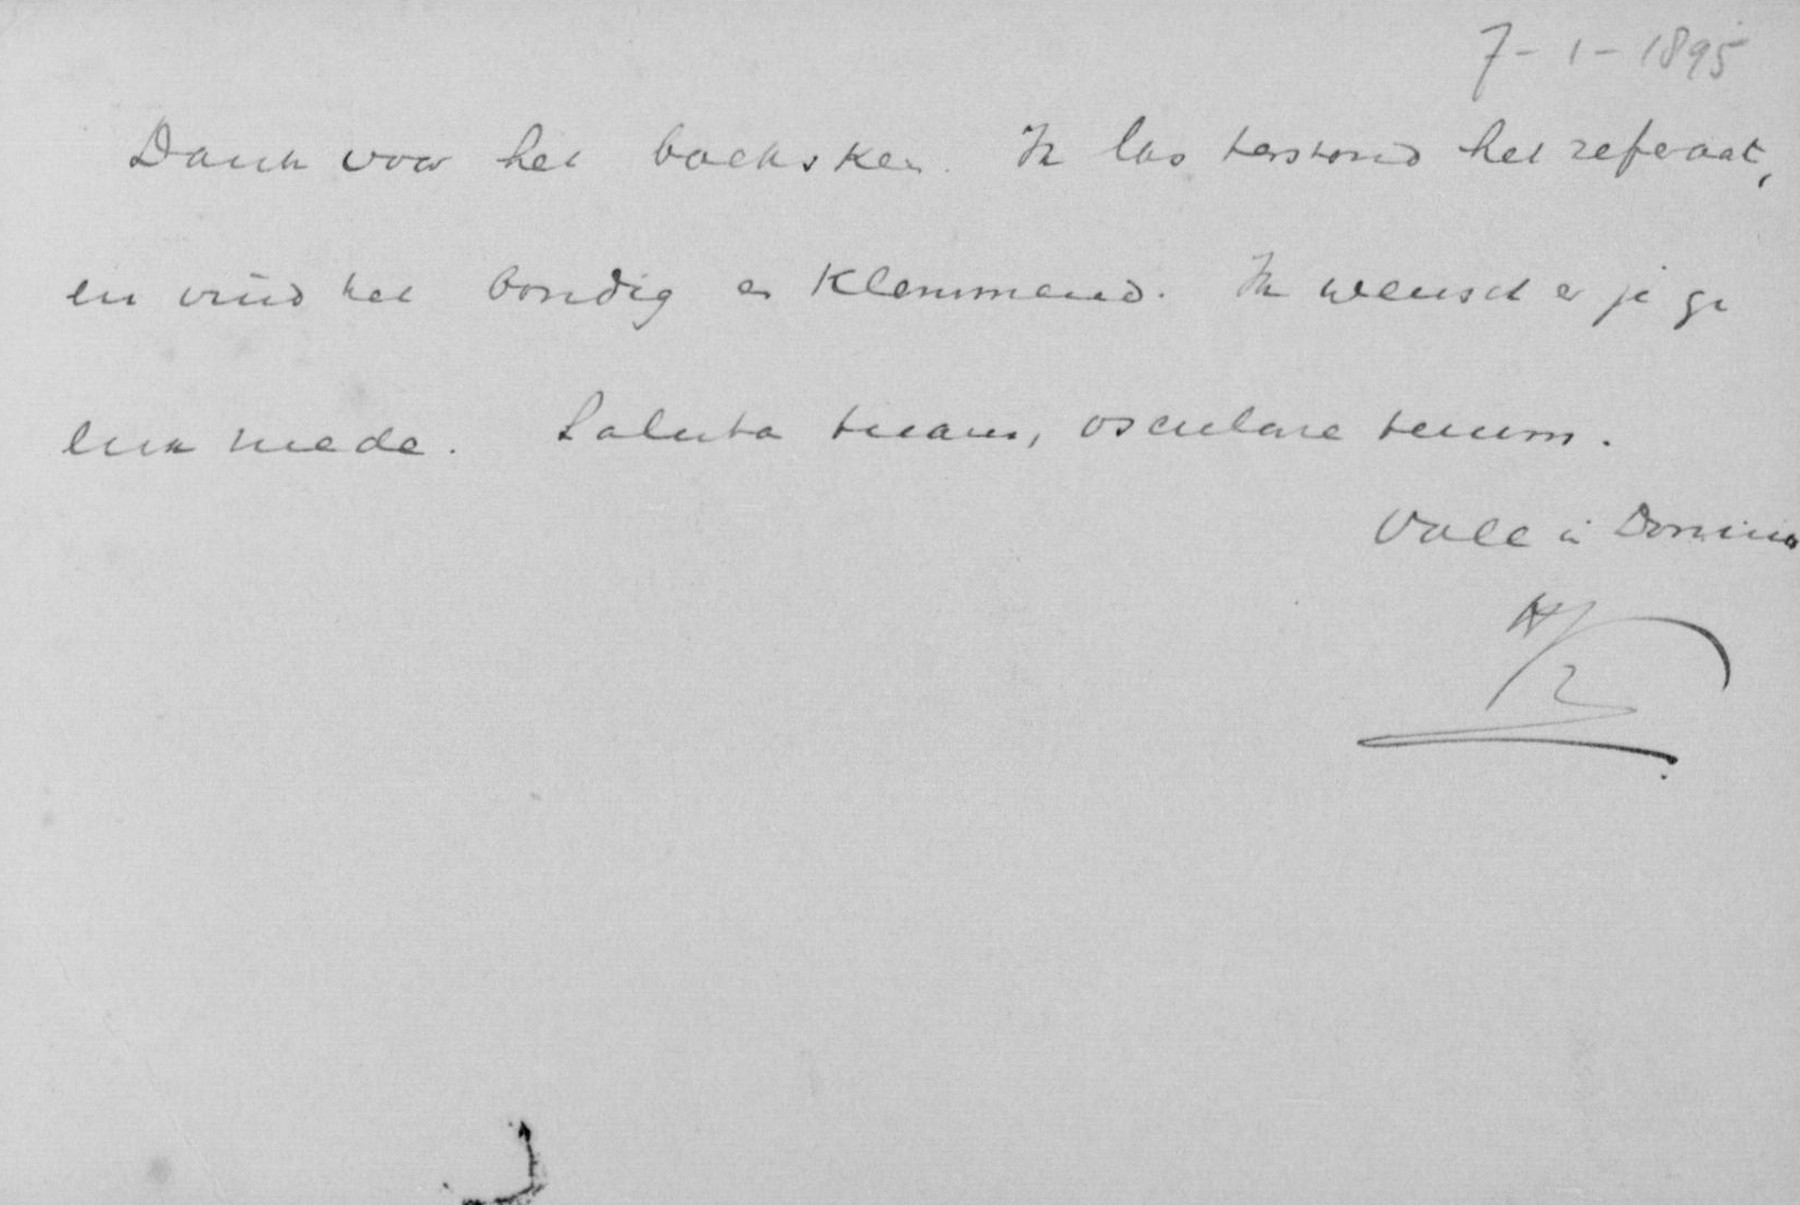 7-1-1895
Dank voor het boeksken. Ik las terstond het referaat,
en vind het bondig en klemmend. Ik wensch er je ge
luk mede. Saluta tuam, osculare tuum.
Vale in Domino